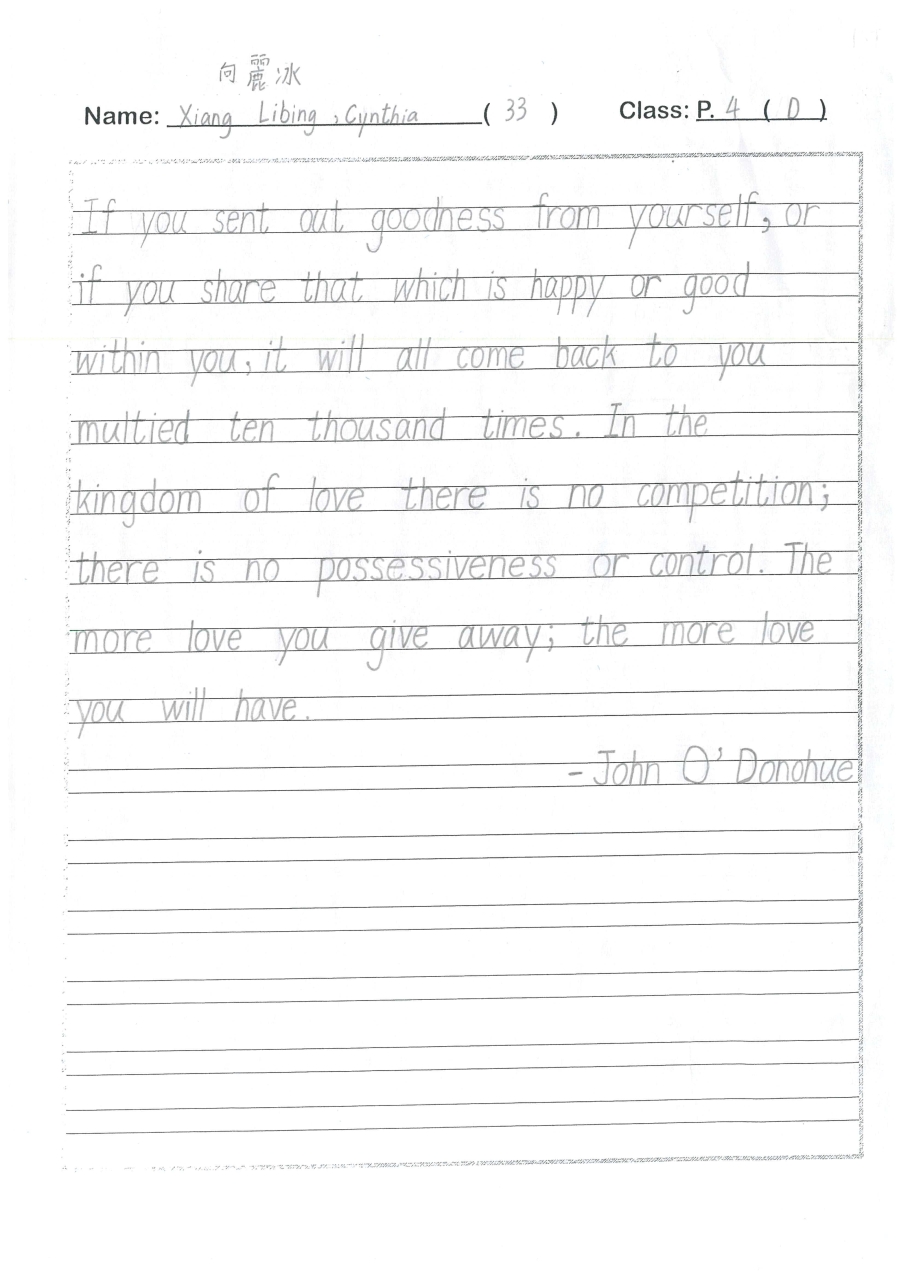 向麗冰
Name: Xiang Libing, Cynthia ( 33 ) Class: P. 4 ( D )
If you sent out goodness from yourself, or
if you share that which is happy or good
within you, it will all come back to you
multied ten thousand times. In the
kingdom of love there is no competition;
there is no possessiveness or control. The
more love you give away; the more love
you will have.
- John O'Donohue